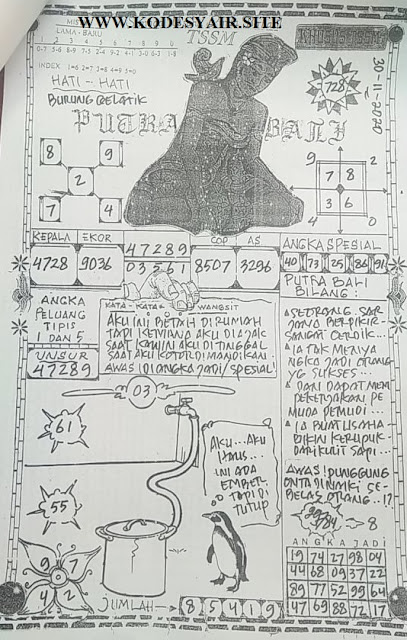 WWW.KODESYAIR.SITE
LAMA - BARU
1 2 3 4 5 6 7 8 9 0
INDEX 1=6 2=7 3=8 4=9 5=0
HATI - HATI
BURUNG GELATIK
TSSM
KHUSUS TSSM
728
30-11-2020
PUTRA BALI
8 9
2
7 4
9 2
7 8
3 6
4 0
KEPALA EKOR
4728 9036
47289
03561
COP AS
8507 3296
ANGKA SPESIAL
40 73 25 86 91
PUTRA BALI
BILANG:
ANGKA
PELUANG
TIPIS
1 DAN 5
UNSUR
47289
KATA - KATA WANGSIT
AKU INI BETAH DIRUMAH
TAPI KEMANA AKU DIAJAK
SAAT KAWIN AKU DITINGGAL
SAAT AKU KOTOR DIMANDIKAN.
AWAS! DIANGKA JADI/SPESIAL!
SEORANG
SANGAT CERDIK...
YG SUKSES...
DAN DAPAT MEM
PEKERJAKAN PE
MUDA PEMUDI...
IA BUAT USAHA
BIKIN KERUPUK
DARI KULIT SAPI...
03
61
55
AKU...AKU
HAUS...
INI ADA
EMBER
TAPI DI
TUTUP
AWAS! PUNGGUNG
ONTA DINAIKI SE-
BELAS ORANG..!?
8
9 7
4 2
JUMLAH → 8 5 4 1 9
ANGKA JADI
19 74 27 98 04
44 68 09 37 22
89 77 52 99 64
47 69 88 72 17